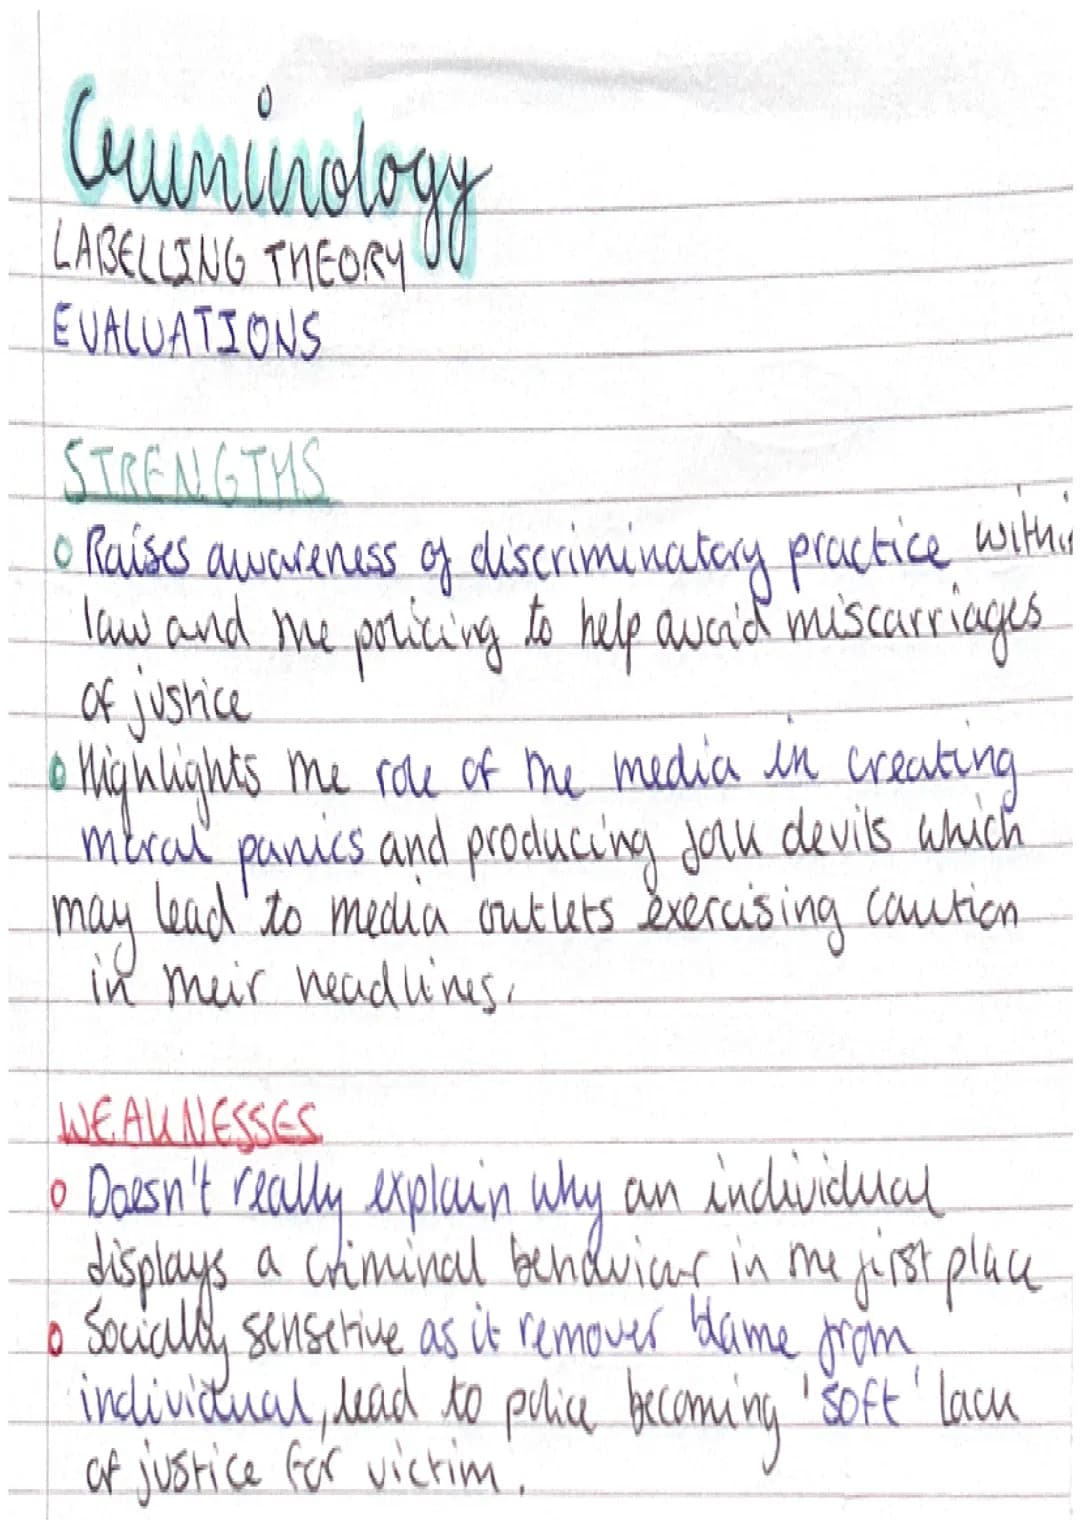 Criminology
LABELLING THEORY
EVALUATIONS
STRENGTHS
o Raises awareness of discriminatory practice within
law and the policing to help avoid miscarriages
of justice
o Highlights the role of the media in creating
moral panics and producing folk devils which
may lead to media outlets exercising caution
in their headlines.
WEAKNESSES
o Doesn't really explain why an individual
displays a criminal behaviour in the first place
o Socially sensetive as it remover blame from
individual, lead to police becoming 'soft' lack
of justice for victim.